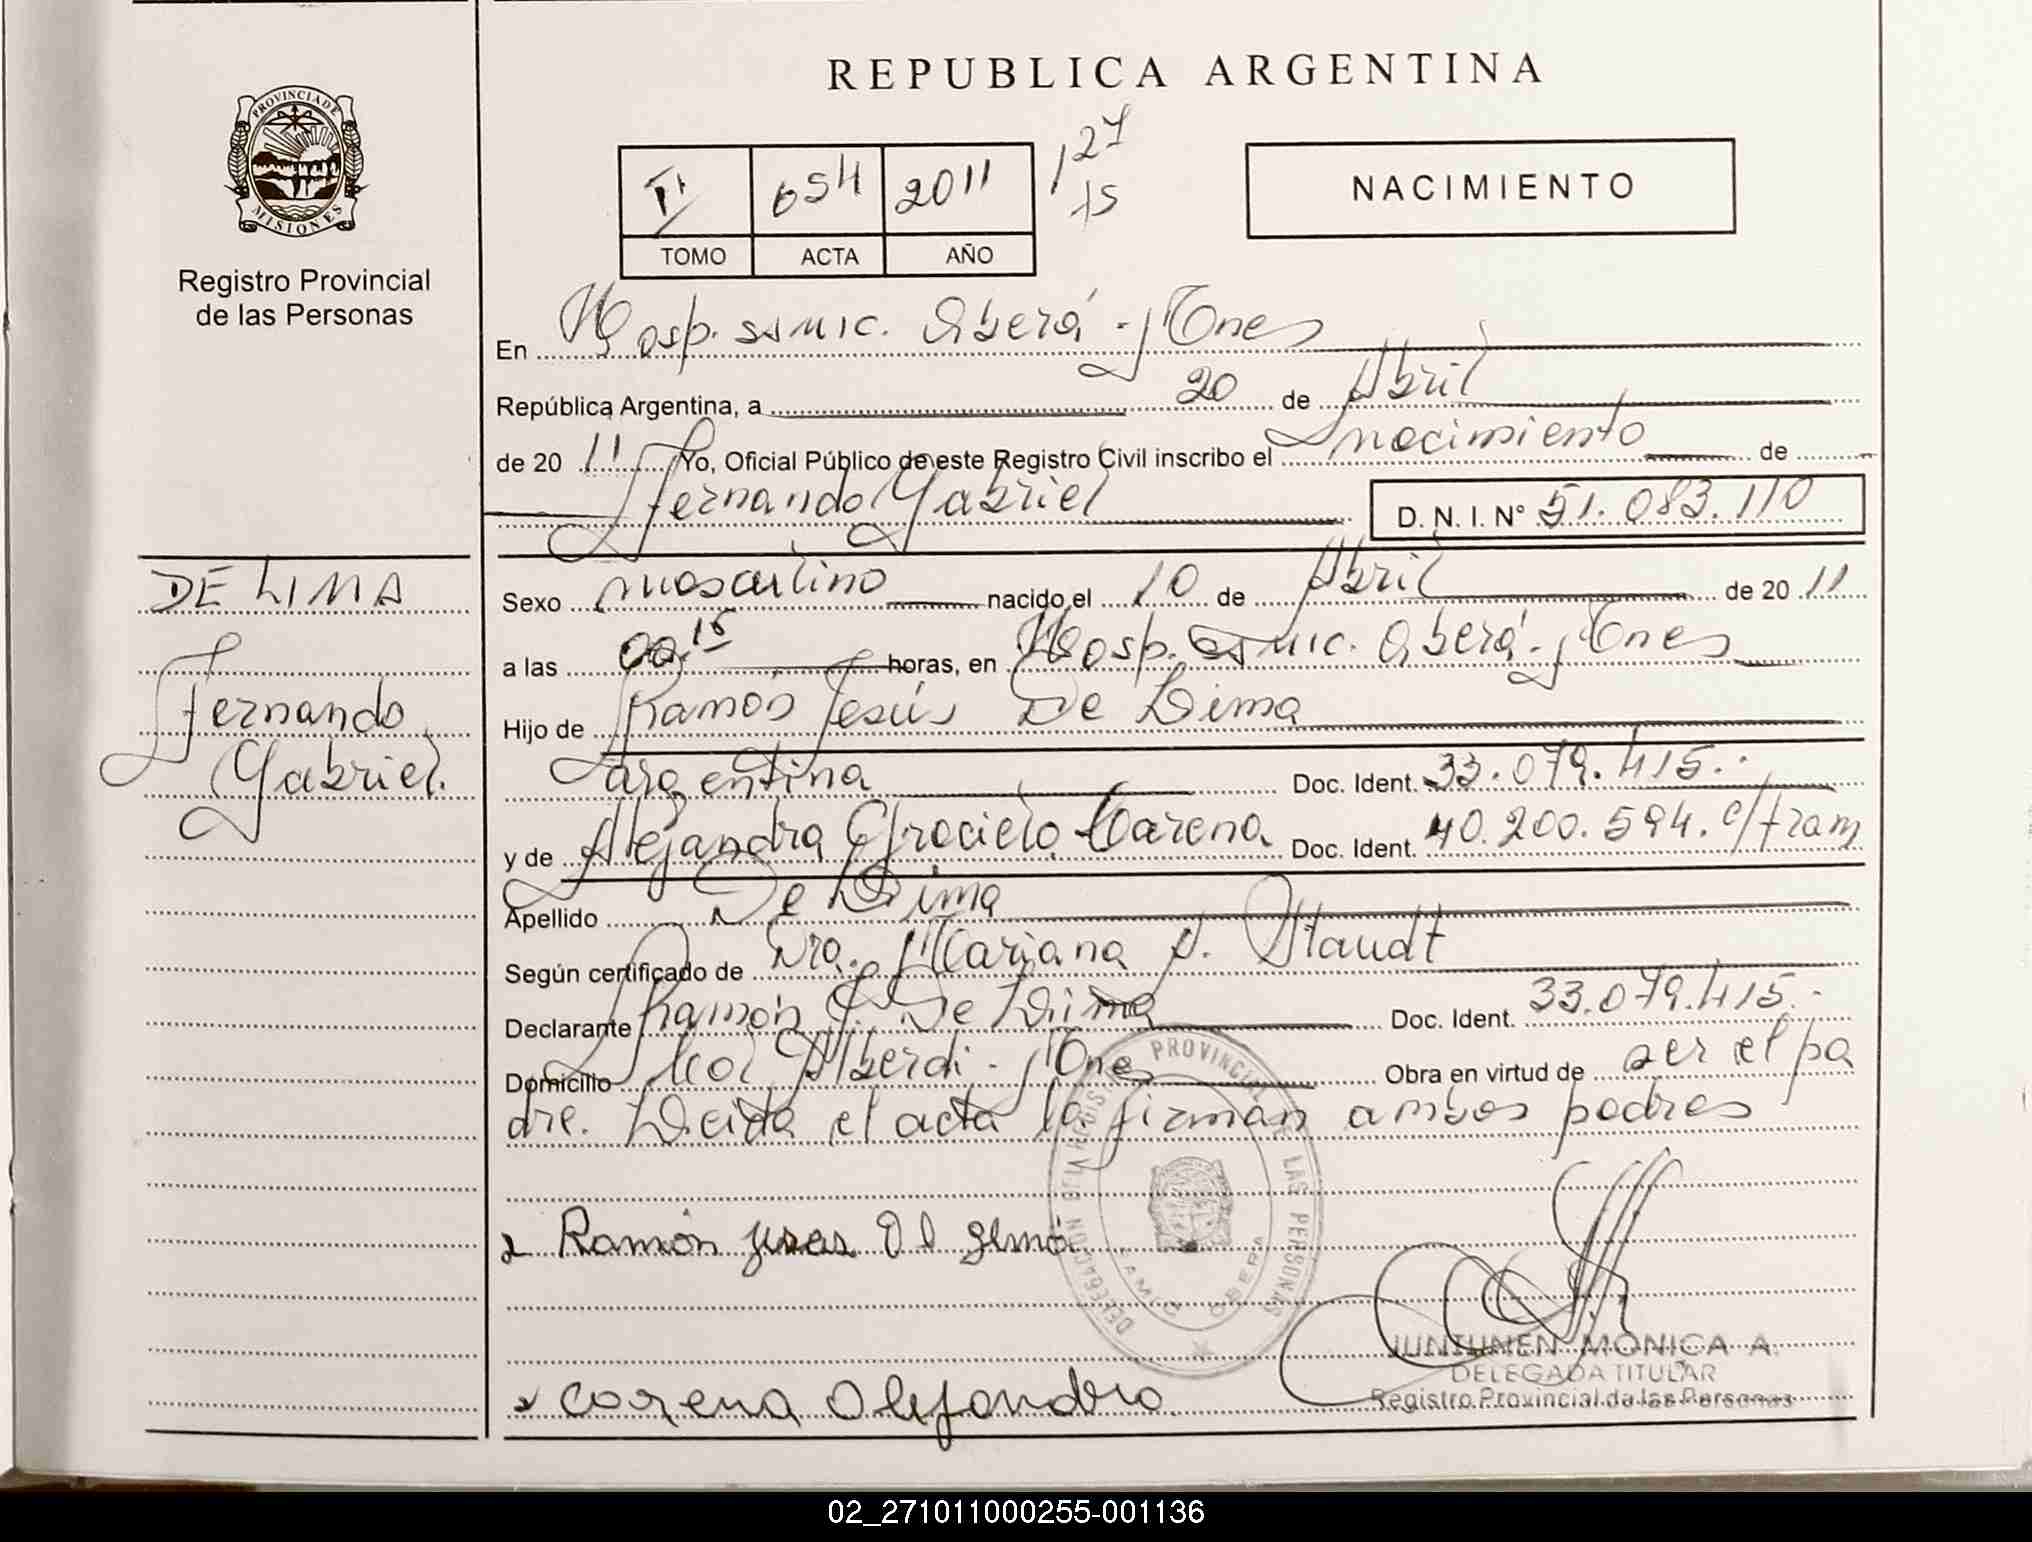 REPUBLICA ARGENTINA
PROVINCIA DE
MISIONES
Registro Provincial
de las Personas
II 654 2011
TOMO ACTA AÑO
127
15
NACIMIENTO
En Hosp. ssmic. Oberá - Mnes
República Argentina, a 20 de Abril
de 20 11 Yo, Oficial Público de este Registro Civil inscribo el nacimiento de
Fernando Gabriel D. N. I. N° 51.083.110
DE LIMA
Fernando
Gabriel.
Sexo masculino nacido el 10 de Abril de 20 11
a las 00.15 horas, en Hosp. ssmic. Oberá - Mnes
Hijo de Ramón Jesús De Lima
argentina Doc. Ident. 33.079.415.-
y de Alejandra Graciela Carena Doc. Ident. 40.200.594. c/tram
Apellido De Lima
Según certificado de Dra. Mariana S. Staudt
Declarante Ramón J. De Lima Doc. Ident. 33.079.415.-
Domicilio Alberdi - Mnes Obra en virtud de ser el pa
dre. Leida el acta la firman ambos padres
Ramón Jesus De Lima
Carena Alejandra
DELEGACION DEL REGISTRO PROVINCIAL DE LAS PERSONAS
OBERA
JUNTUNEN MONICA A.
DELEGADA TITULAR
Registro Provincial de las Personas
02_271011000255-001136